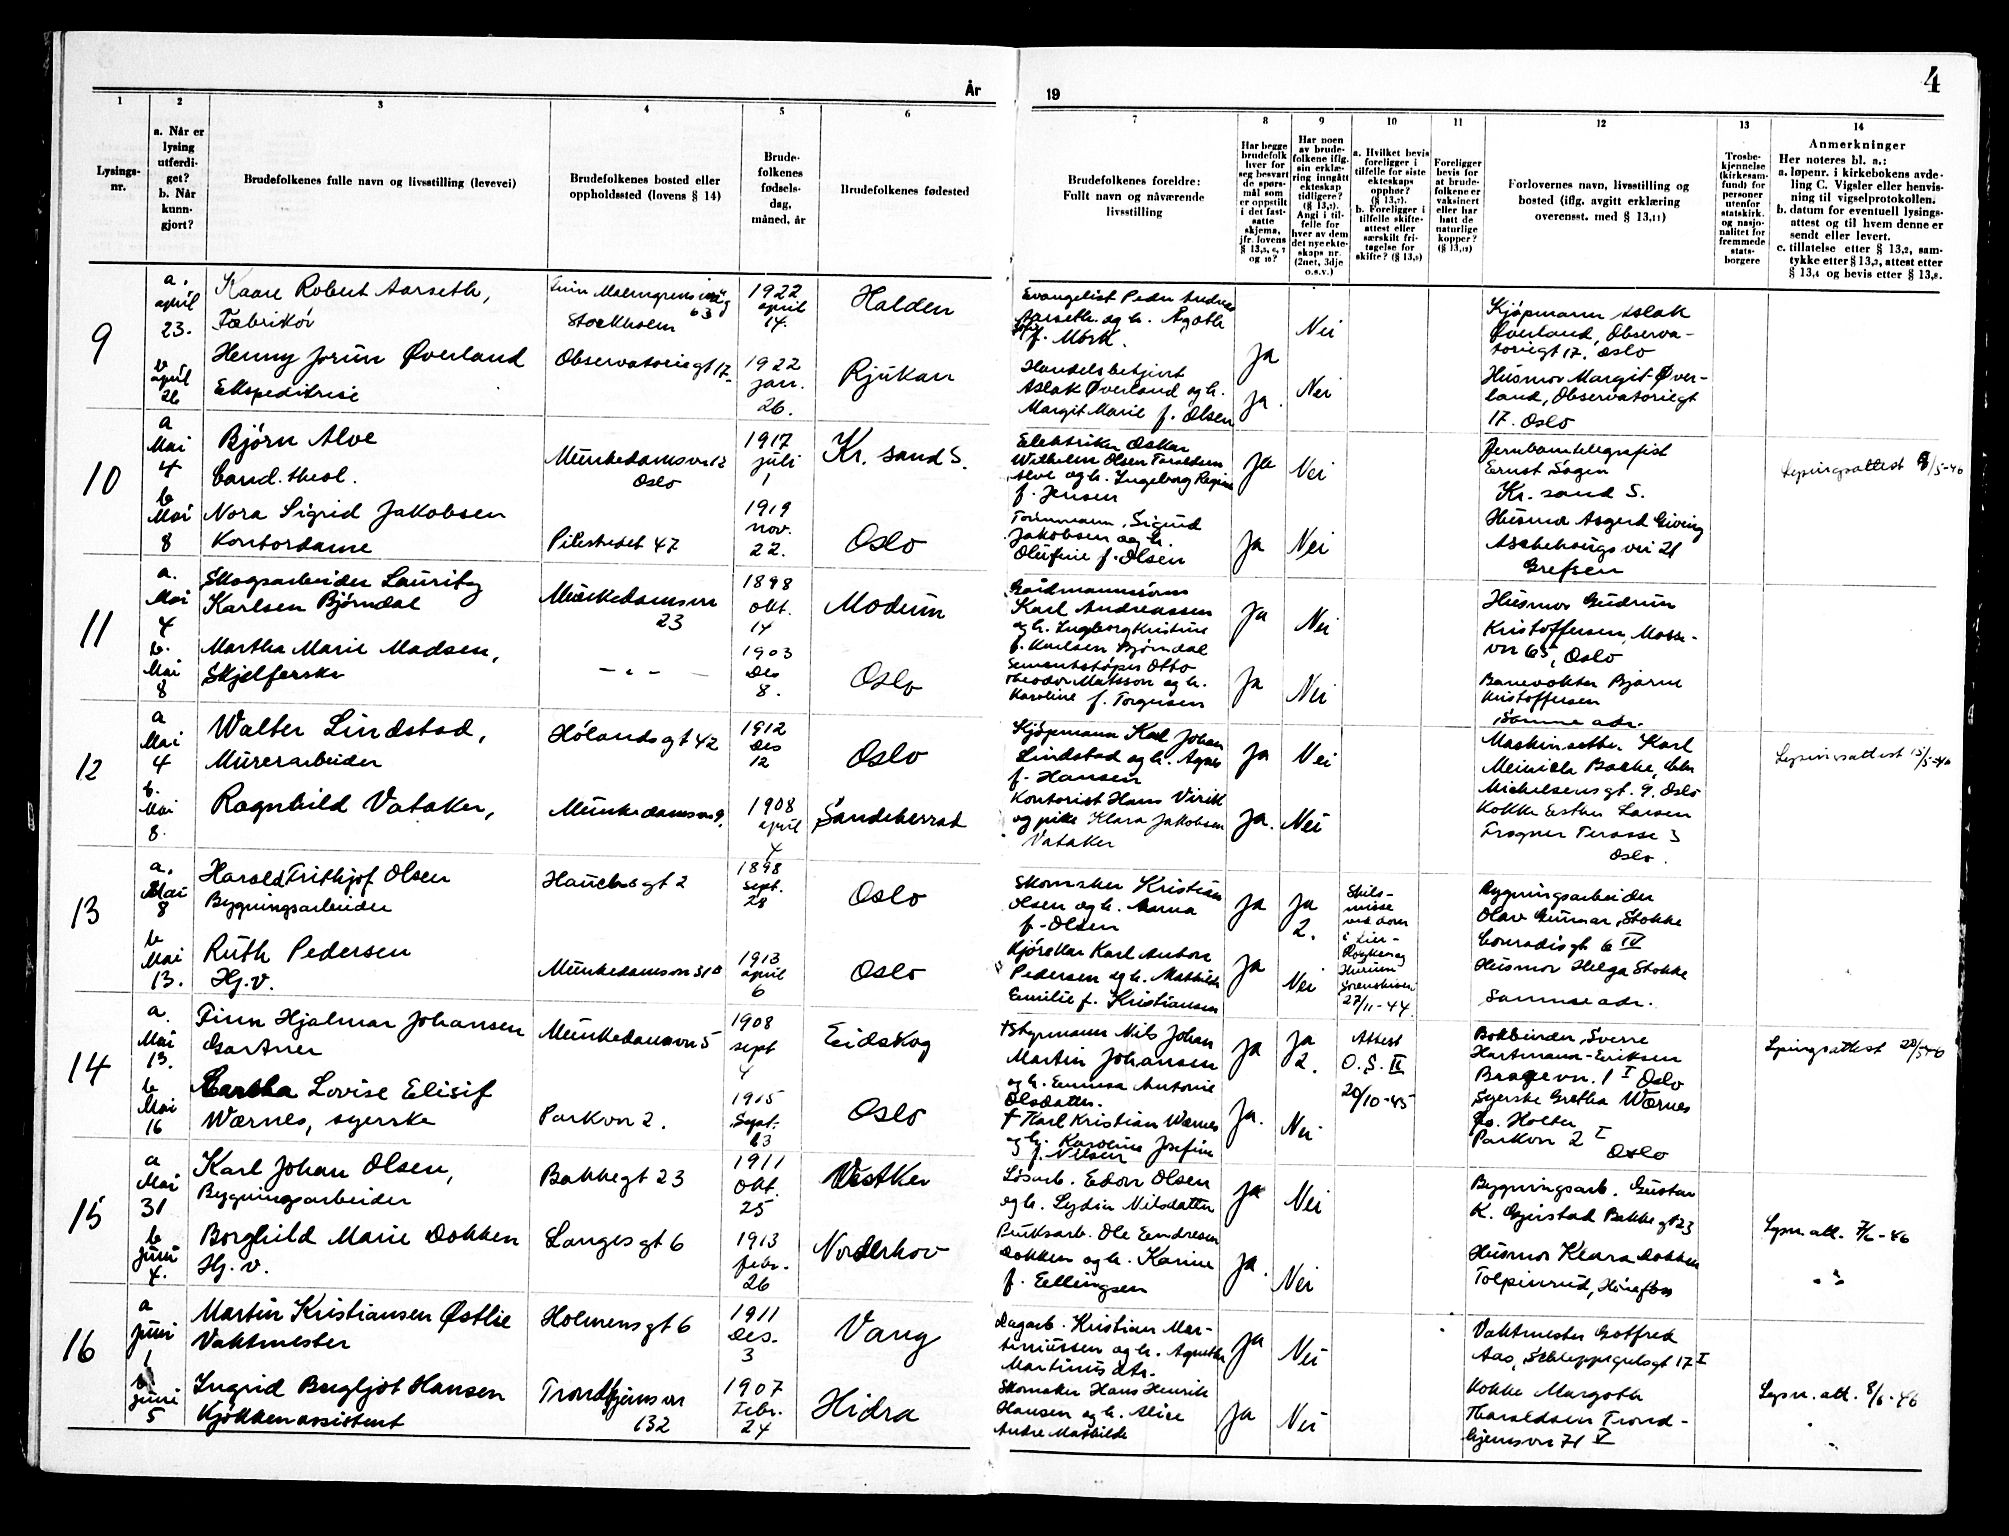 År
19
4
1
2
3
4
5
6
7
8
9
10
11
12
13
14
Lysings-
nr.
a. Når er
lysing
utferdi-
get?
b. Når
kunn-
gjort?
Brudefolkenes fulle navn og livsstilling (levevei)
Brudefolkenes bosted eller
oppholdssted (lovens § 14)
Brude-
folkenes
fødsels-
dag,
måned, år
Brudefolkenes fødested
Brudefolkenes foreldre:
Fullt navn og nåværende
livsstilling
Har begge
brudefolk
hver for
seg besvart
de spørs-
mål som
er oppstilt
i det fast-
satte
skjema,
jfr. lovens
Har noen
av brude-
folkene iflg.
sin erklæ-
ring inngått
ekteskap
tidligere?
(§ 13,7).
Angi i til-
felle for
hver av dem
det nye ekte-
skaps nr.
(2net, 3dje
o.s.v.)
a. Hvilket bevis
foreligger i
tilfelle for siste
ekteskaps
opphør?
(§ 13,7).
b. Foreligger i
tilfelle skifte-
attest eller
særskilt fri-
tagelse for
skifte? (§ 13,9)
Foreligger
bevis for
at brude-
folkene er
vaksinert
eller har
hatt de
naturlige
kopper?
Forlovernes navn, livsstilling og
bosted (iflg. avgitt erklæring
overensst. med § 13,11)
Trosbe-
kjennelse
(kirkesam-
fund) for
personer
utenfor
statskirk.
og nasjo-
nalitet for
fremmede
stats-
borgere
Anmerkninger
Her noteres bl. a.:
a. løpenr. i kirkebokens avde-
ling C. Vigsler eller henvis-
ning til vigselprotokollen.
b. datum for eventuell lysings-
attest og til hvem denne er
sendt eller levert.
c. tillatelse etter § 13,2, sam-
tykke etter § 13,3, attest etter
§ 13,4 og bevis etter § 13,8.
9
a.
april
23.
Kaare Robert Aarseth,
Fabrikör
Malmgrens väg
63
Stockholm
1922
april
14.
Halden
Evangelist Peder Andreas
Aarseth og h. Agoth
f. Mørk.
Ja
Nei
Kjøpmann Aslak
Øverland, Observa-
toriegt 17. Oslo
b
april
26
Henny Jorun Øverland
Ekspeditrise
Observatoriegt 17
1922
jan.
26.
Rjukan
Handelsbetjent
Aslak Øverland og h.
Margit Marie f. Olsen
Ja.
Nei
Husmor Margit Øver-
land, Observatoriegt
17. Oslo
10
a
Mai
4
Bjørn Alve
Cand. theol.
Munkedamsvn 12
Oslo
1917
juli
1
Kr. sand S.
Elektriker Oskar
Wilhelm Olsen Taraldsen
Alve og h. Ingeborg Regine
f. Jensen
Ja
Nei
Jernbanetelegrafist
Ernst Sagen
Kr. sand S.
Lysingsattest 8/5-46
b
Mai
8
Nora Sigrid Jakobsen
Kontordame
Pilestredet 47
1919
nov.
22.
Oslo
Tørnmann, Sigurd
Jakobsen og h.
Olufine f. Olsen
Ja
Nei
Husmor Asgerd Giving
Aschehougs vei 21
Grefsen
11
a.
Mai
4
Skogsarbeider Lauritz
Karlsen Bjørndal
Munkedamsvn
23
1898
okt.
14
Modum
Gårdmannssønn
Karl Andreassen
og h. Ingeborg Kristine
f. Karlsen Bjørndal
Ja
Nei
Husmor Gudrun
Kristoffersen, Mosse-
vn 65, Oslo
b.
Mai
8
Martha Marie Madsen,
Skjelferske
- " - -
1903
Des
8.
Oslo
Sementstøper Otto
Theodor Matsson og h.
Karoline f. Torgersen
Ja
Nei
Banevokter Bjarne
Kristoffersen
Samme adr.
12
a
Mai
4
Walter Lindstad,
Murerarbeider
Hølandsgt 42
1912
Des
12
Oslo
Kjøpmann Karl Johan
Lindstad og h. Agnes
f. Hansen
Ja
Nei
Maskinsetter Karl
Meinich Bache, Chr
Michelsensgt. 9, Oslo
Lysingsattest 15/5-46
b.
Mai
8.
Ragnhild Vataker,
Munkedamsvn 9.
1908
april
4
Sandeherred
Kontorist Hans Virik
og pike Klara Jakobsen
Vataker
Ja.
Nei
Kokke Esther Larsen
Frogner Terasse 3
Oslo.
13
a.
Mai
8
Harald Frithjof Olsen
Bygningsarbeider
Hauchsgt 2
1898
Sept.
28
Oslo
Skomaker Kristian
Olsen og h. Anna
f. Olsen
Ja
Ja
2.
Skils-
misse
ved dom
i Lier-
Røyken og
Hurum
Sorenskriveri
27/11-44
Bygningsarbeider
Olav Gunnar Stokke
Conradisgt 6 IV
b
Mai
13.
Ruth Pedersen
Hj.v.
Munkedamsvn 31
1913
april
6
Oslo
Kjørekar Karl Anton
Pedersen og h. Mathilde
Emilie f. Kristiansen
Ja
Nei
Husmor Helga Stokke
Samme adr.
14
a.
Mai
13.
Finn Hjalmar Johansen
Gartner
Munkedamsvn 5
1908
sept
4
Eidskog
†Styrmann Nils Johan
Martin Johansen
og h. Emma Antonie
Olsdatter.
Ja
Ja
2.
Attest
O.S. II
20/10-45
Bokbinder, Sverre
Hartmann-Eriksen
Bragevn. 1 I Oslo
Lysingsattest 20/5-46
b
Mai
16
Lovise Elisif
Wærnes, syerske
Parkvn 2.
1915
Sept.
13
Oslo
† Karl Kristian Wærnes
og h. Karoline Josefine
f. Nilsen
Ja.
Nei
Syerske Gretha Wærnes
Holter
Parkvn 2 I
Oslo
15
a
Mai
31
Karl Johan Olsen,
Bygningsarbeider
Bakkegt 23
1911
okt.
25
Vestker
Løsarb. Edon Olsen
og h. Lydia Nilsdatter
Ja
Nei
Bygningsarb. Gustav
K. Gjerstad Bakkegt 23
Lysn. att. 7/6-46
b
juni
4.
Borghild Marie Dokken
Hj.v.
Langesgt 6
1913
febr.
26
Norderhov
Bruksarb. Ole Endresen
Dokken og h. Karine
f. Ellingsen
Ja.
Nei
Husmor Klara Dokken
Tolpinrud, Hønefoss
" "
16
a
juni
1
Martin Kristiansen Østlie
Vaktmester
Holmensgt 6
1911
Des.
3
Vang
Dagarb. Kristian Mar-
tiniussen og h. Agnethe
Martinusdtr.
Ja
Nei
Vaktmester Gotfred
Aas, Schleppegrelsgt 17 I
b
juni
5
Ingrid Bergljot Hansen
Kjøkkenassistent
Trondhjemsvn
132
1907
Febr.
24
Hidra
Skomaker Hans Henrik
Hansen og h. Alice
Andre Mathilde
Ja
Nei
Kokke Margoth
Tharaldsen Trond-
hjemsvn 71 V
Lysn. att. 8/6-46